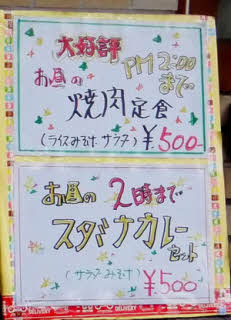 大好評
PM 2:00
お昼の
まで
焼肉定食
(ライスみそ汁 サラダ)
¥500-
お昼の 2時まで
スタミナカレー
セット
(サラダ みそ汁)
¥500
DELIVERY
DELIVERY